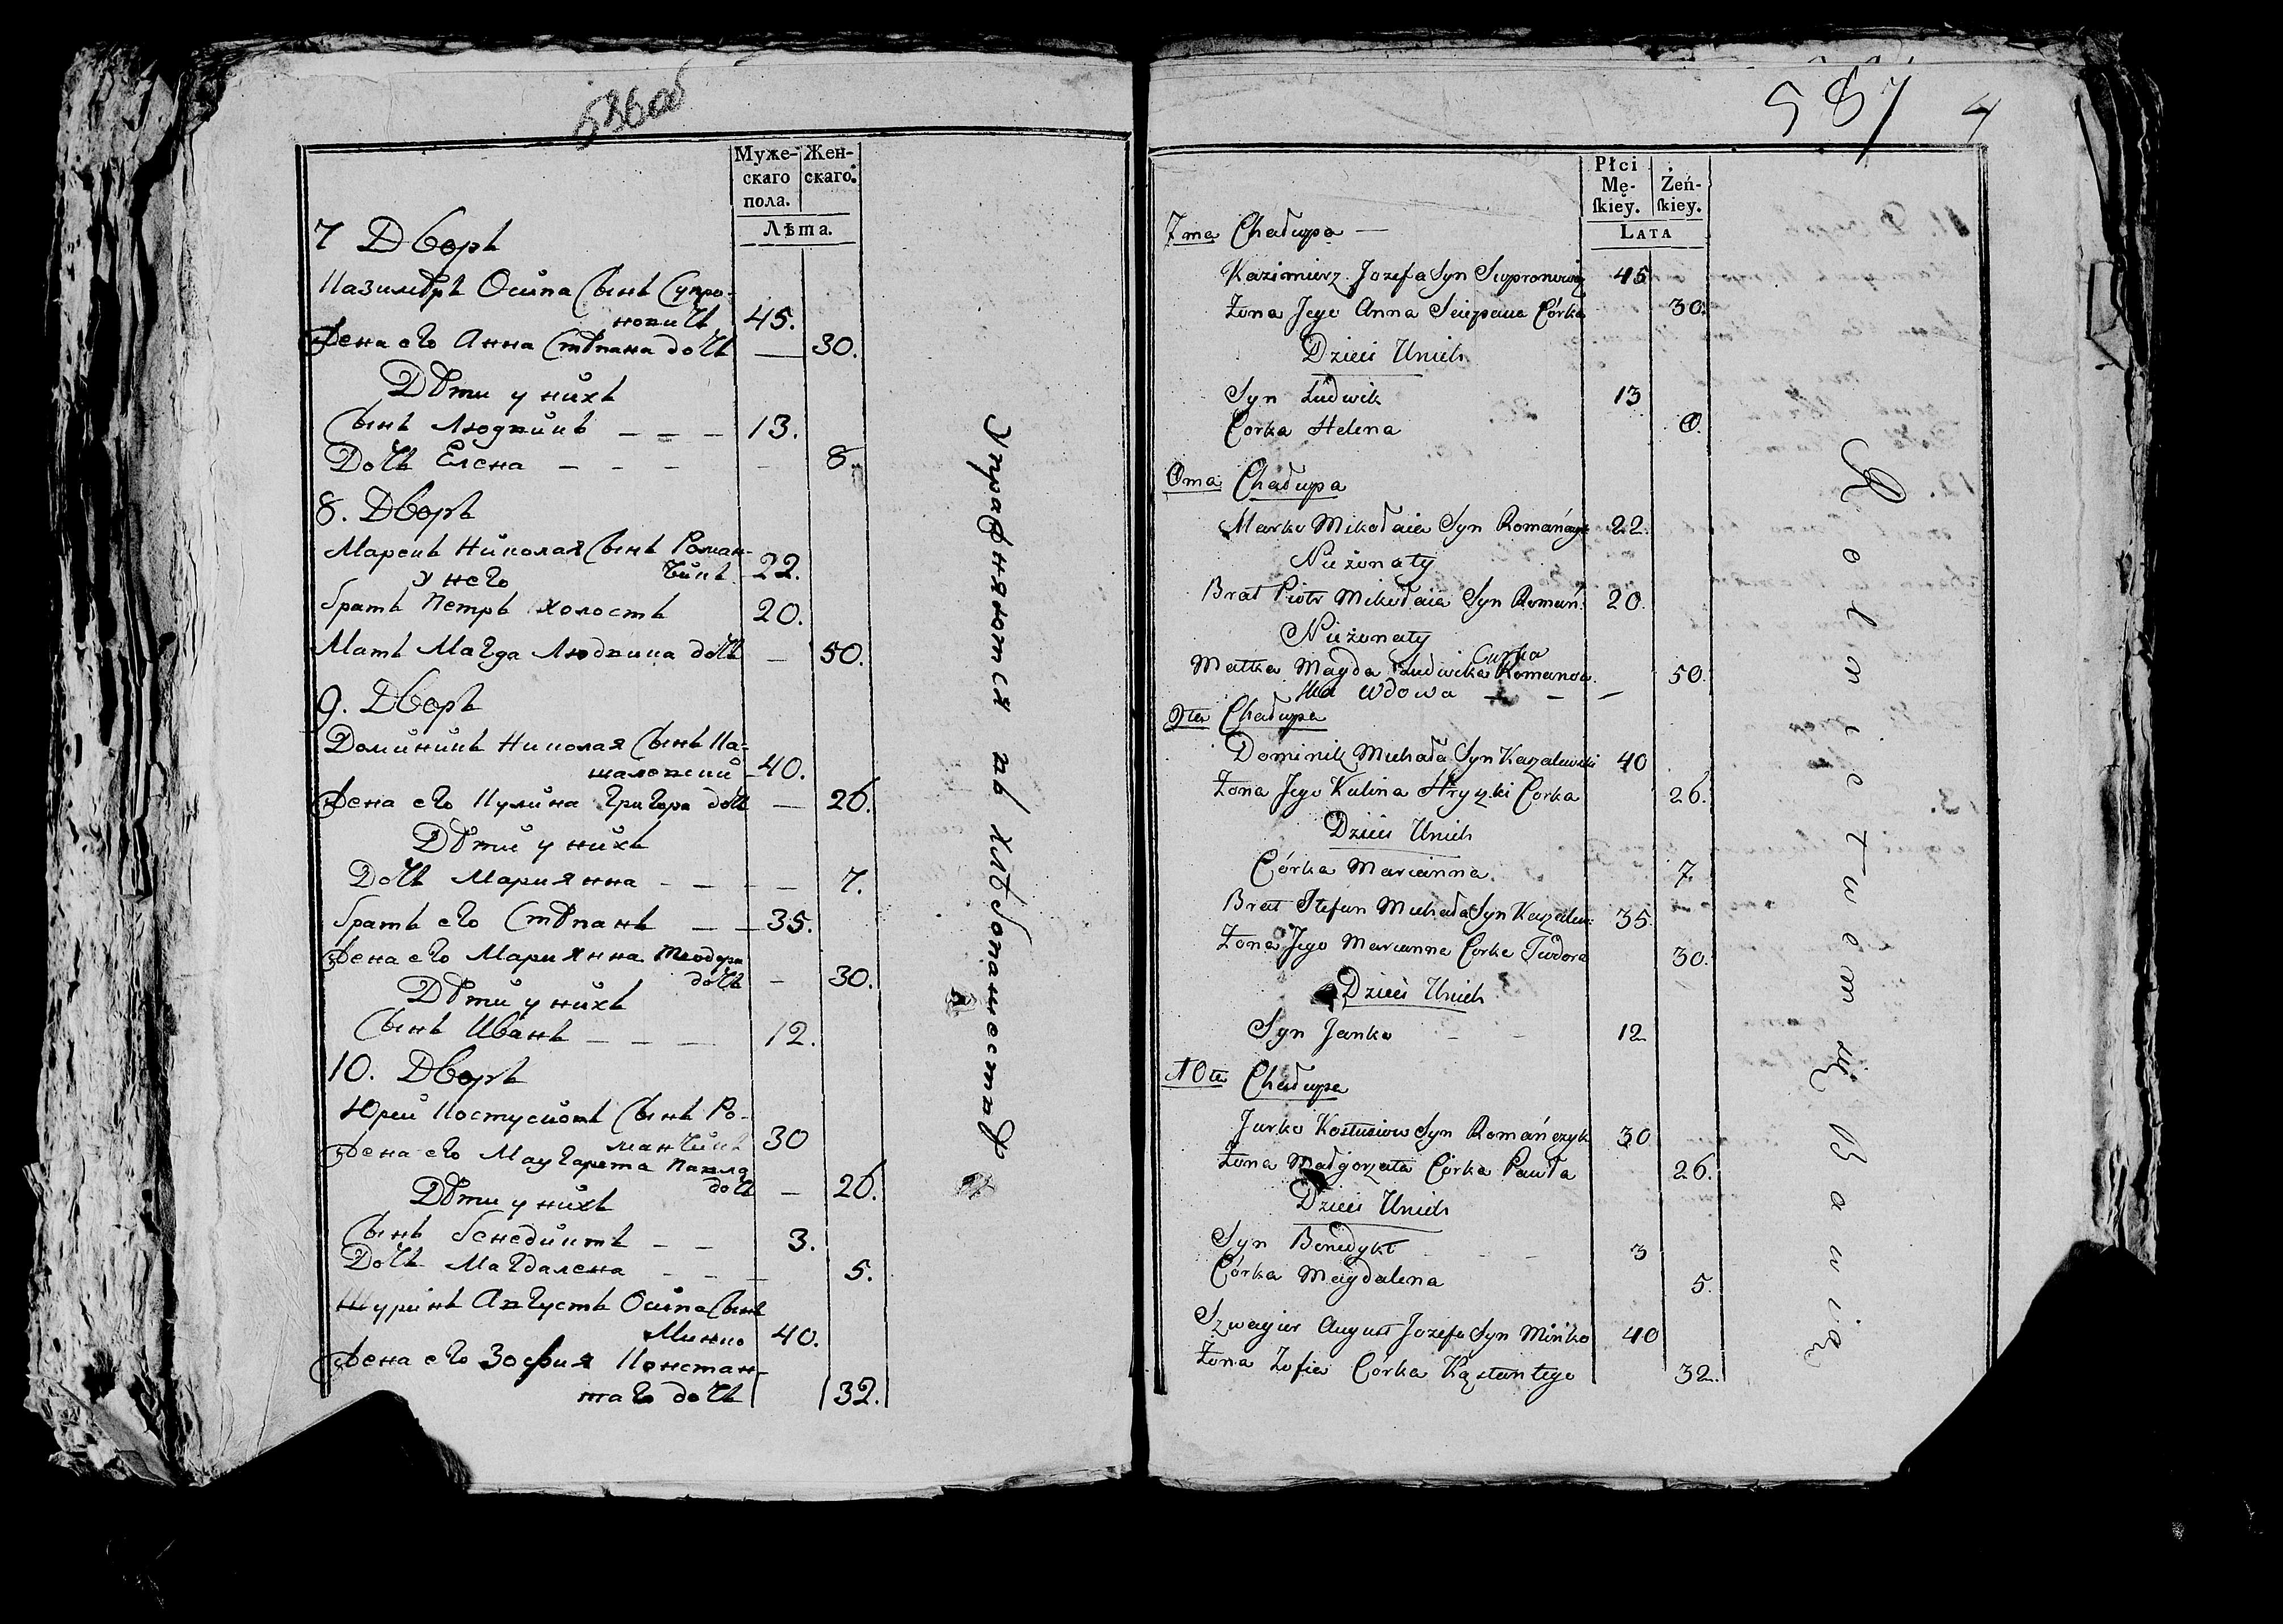 536об
Муже-
скаго
пола.
Жен-
скаго.
Лѣта.
7 Дворъ
Казимѣръ Осипа Сынъ Супро-
новичъ 45.
Жена его Анна Стѣпана дочь — 30.
Дѣти у нихъ
Сынъ Людвикъ — — — 13.
Дочь Елена — — — — 8.
8. Дворъ
Марекъ Николая Сынъ Роман-
чикъ 22.
у него
братъ Петръ холостъ 20.
Мать Магда Людвика дочь — 50.
9. Дворъ
Доминикъ Николая Сынъ Ка-
шалевский 40.
Жена его Кулина Григора дочь — 26.
Дѣти у нихъ
Дочь Мариянна — — — — 7.
братъ его Стѣпанъ — — 35.
Жена его Мариянна Теодора
дочь — 30.
Дѣти у нихъ
Сынъ Иванъ — — — 12.
10. Дворъ
Юрей Костусйовъ Сынъ Ро-
манчикъ 30
Жена его Маргарета Павла
дочь — 26.
Дѣти у нихъ
Сынъ бенедиктъ — — 3.
Дочь Магдалена — — — 5.
Шуринъ Августъ Осипа Сынъ
Минко 40.
Жена его Зофия Констан-
таго дочь 32.
Упражняются въ хлѣбопашествѣ
587 4
Płci
Mę-
ſkiey.
Żeń-
ſkiey.
LATA
7ma Chałupa —
Kazimierz Jozefa Syn Supronowicz 45
Żona Jego Anna Sciepana Córka 30.
Dzieci Unich
Syn Ludwik 13
Corka Helena 8.
8ma Chałupa
Marko Mikołaia Syn Romańczyk 22.
Nieżonaty
Brat Piotr Mikołaia Syn Romań. 20.
Nieżonaty
Curka
Matka Magda Ludwika Romanow.
ska wdowa — — — 50.
9ta Chałupa
Dominik Michała Syn Kaszalewski 40
Żona Jego Kulina Hryszki Corka 26.
Dzieci Unich
Córka Marianna. 7
Brat Stefan Michała Syn Kaszalew: 35.
Żona Jego Marianna Corka Tudora 30.
Dzieci Unich
Syn Janko — — 12
10ta Chałupa
Jurko Kostusiow Syn Romańczyk 30
Żona Małgorzata Córka Pawła 26.
Dzieci Unich
Syn Benedykt — — — 3
Córka Magdalena 5.
Szwagier August Jozefa Syn Minko 40
Żona Zofia Córka Kąstantego 32.
Rolnictwem się Bawią